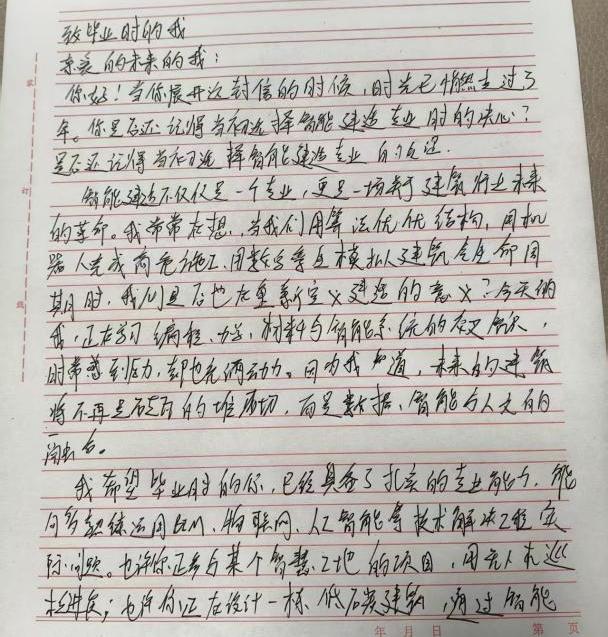 致毕业时的我
亲爱的未来的我：
你好！当你展开这封信的时候，时光已悄然走过了
年。你是否还记得当初选择智能建造专业时的决心？
是否还记得当初选择智能建造专业的
智能建造不仅仅是一个专业，更是一场关于建筑行业未来
的革命。我常常在想，当我们用算法优化结构，用机
器人完成高危施工、用数字孪生模拟建筑全生命周
期时，我们是否也在重新定义建造的意义？今天的
我，正在学习编程、力学、材料与智能系统的交叉知识，
时常感到压力，却也充满动力。因为我知道，未来的建筑
将不再是的堆砌，而是数据、智能与人文的
融合。
我希望毕业时的你，已经具备了扎实的专业能力，能
够熟练运用BIM、物联网、人工智能等技术解决工程实
际问题。也许你正参与某个智慧工地的项目，用无人机巡
检进度；也许你正在设计一栋低碳建筑，通过智能
年 月 日 第 页
装
订
线